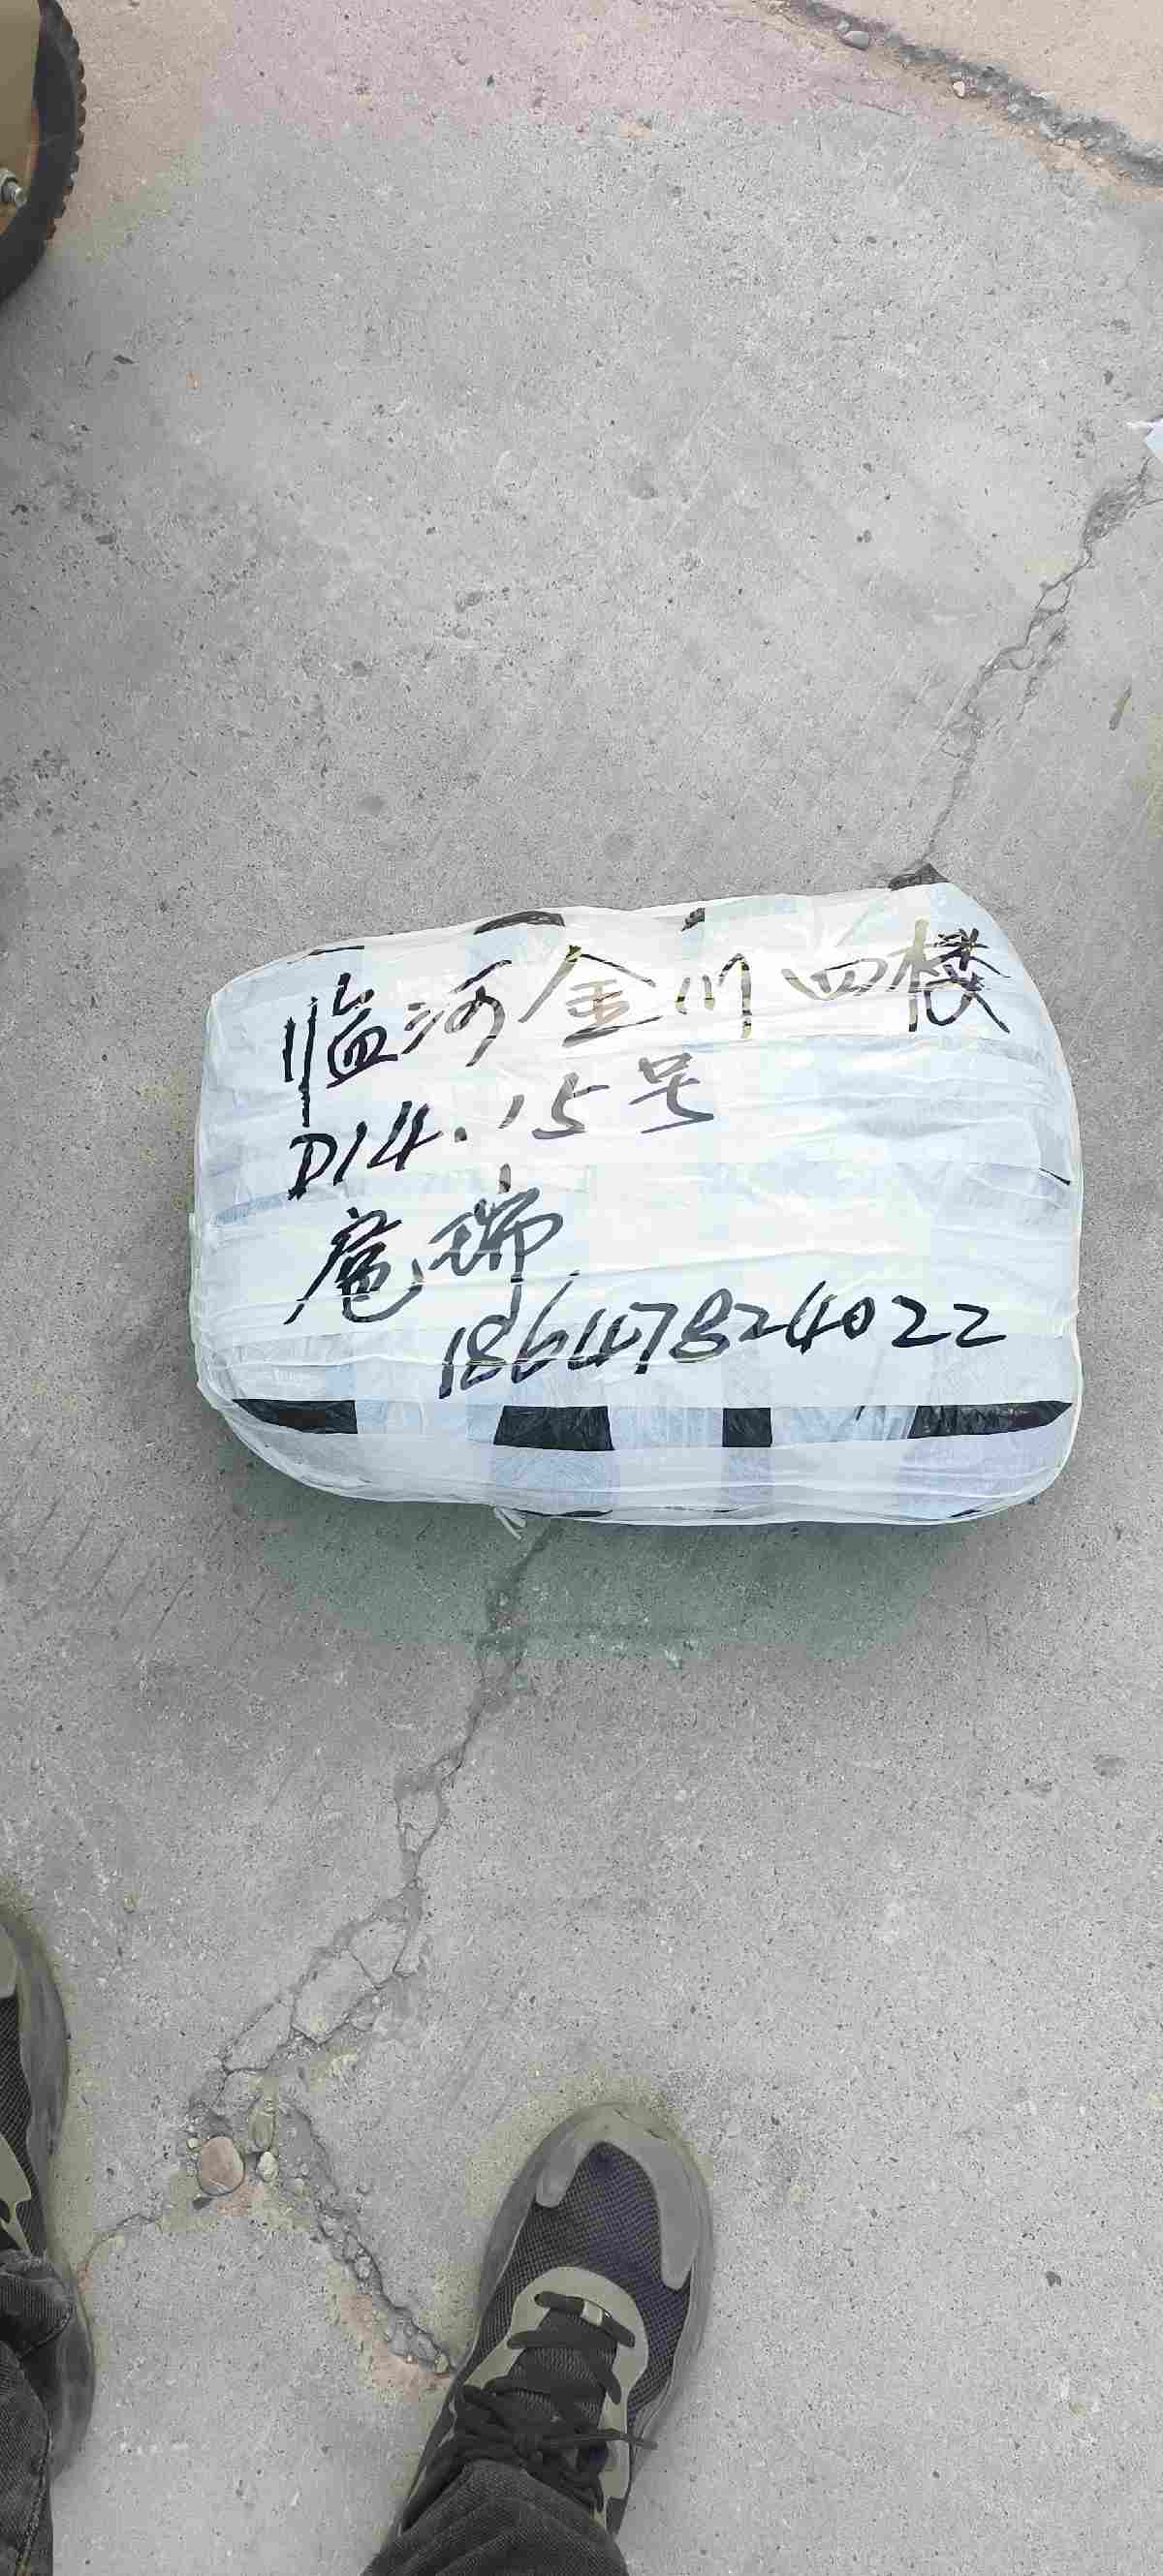 临河金川四楼
D14.15号
庵瑞
18647824022